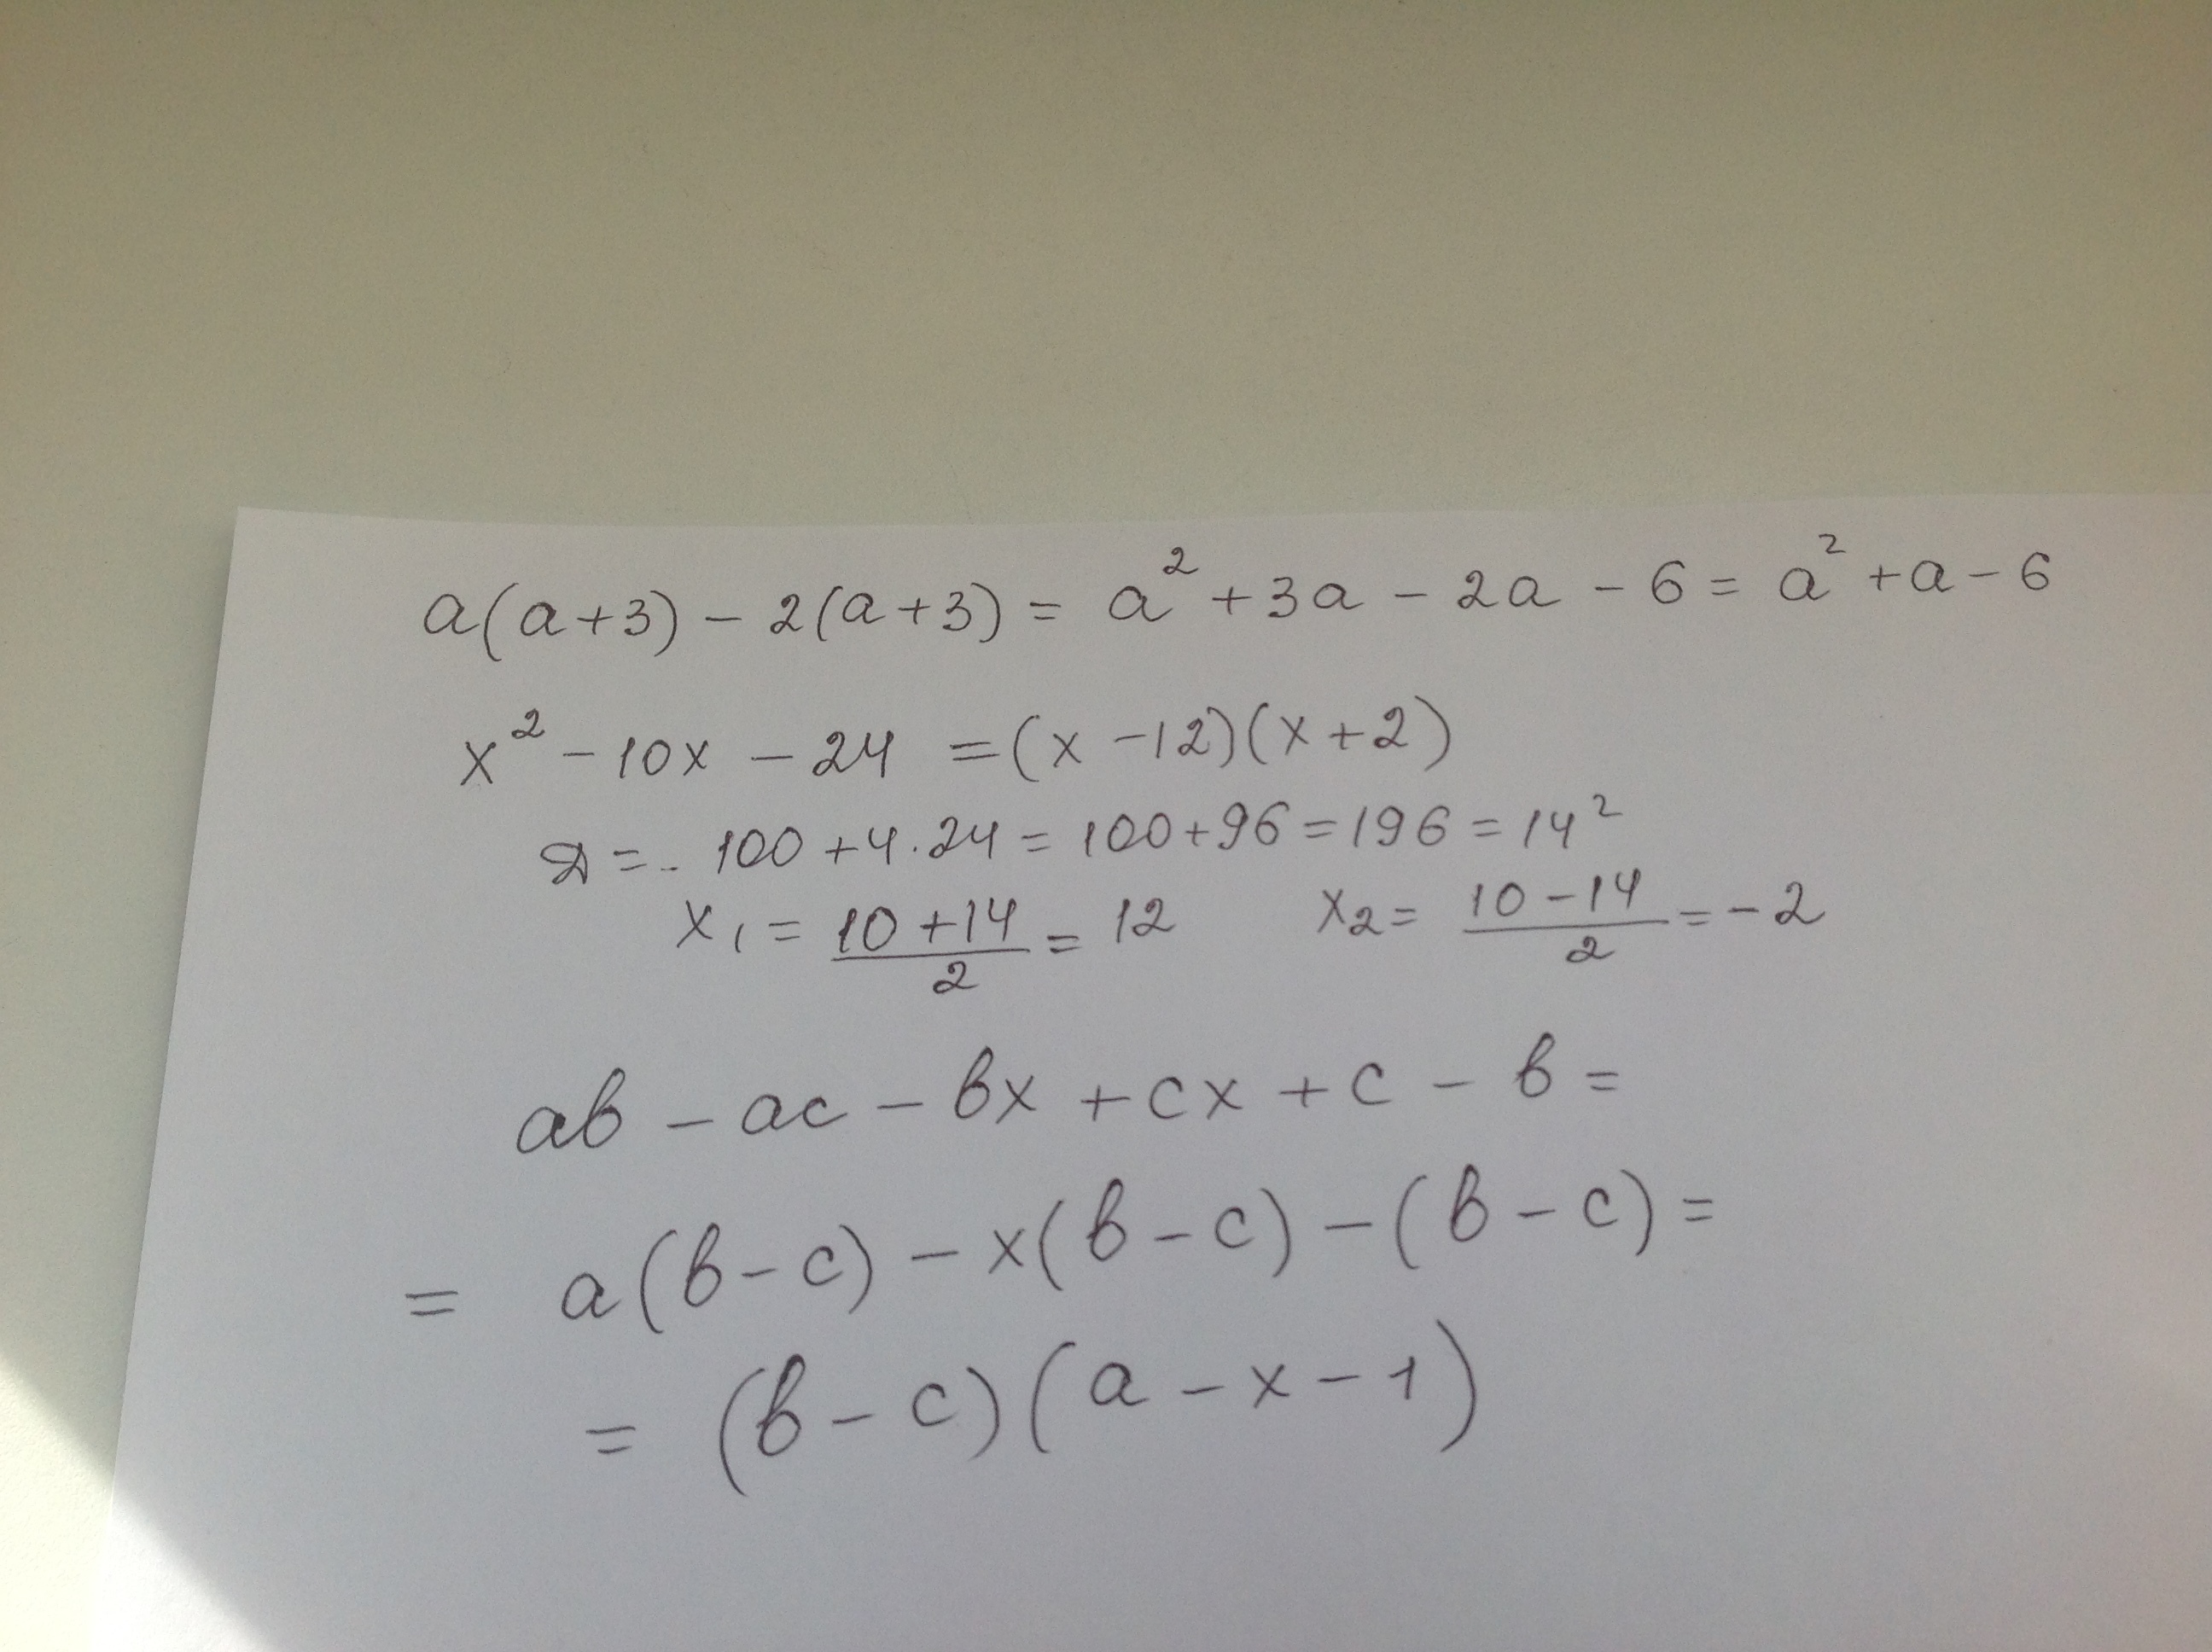 a(a+3) - 2(a+3) = a² + 3a - 2a - 6 = a² + a - 6
x² - 10x - 24 = (x - 12)(x + 2)
Д = 100 + 4·24 = 100 + 96 = 196 = 14²
x₁ = (10 + 14)/2 = 12 x₂ = (10 - 14)/2 = -2
ab - ac - bx + cx + c - b =
= a(b - c) - x(b - c) - (b - c) =
= (b - c)(a - x - 1)